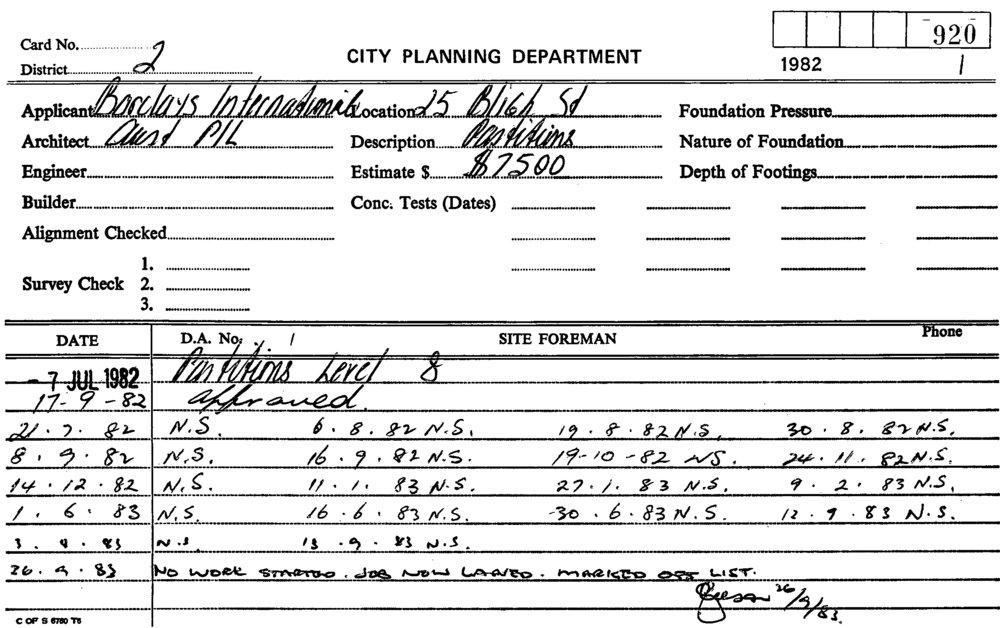 920
Card No.
CITY PLANNING DEPARTMENT
1982 1
District 2
Applicant Barclays International Location 25 Bligh St Foundation Pressure
Architect Aust P/L Description Partitions Nature of Foundation
Engineer Estimate $ $7500 Depth of Footings
Builder Conc. Tests (Dates)
Alignment Checked
1.
Survey Check 2.
3.
DATE D.A. No. SITE FOREMAN Phone
- 7 JUL 1982 Partitions Level 8
17-9-82 approved.
21.7.82 N.S. 6.8.82 N.S. 19.8.82 N.S. 30.8.82 N.S.
8.9.82 N.S. 16.9.82 N.S. 19-10-82 NS. 24.11.82 N.S.
14.12.82 N.S. 11.1.83 N.S. 27.1.83 N.S. 9.2.83 N.S.
1.6.83 N.S. 16.6.83 N.S. 30.6.83 N.S. 12.9.83 N.S.
83 N.S. 13.9.83 N.S.
26.9.83 NO WORK STARTED. JOB NOW MARKED OFF LIST.
26/9/83.
C OF S 6780 T6